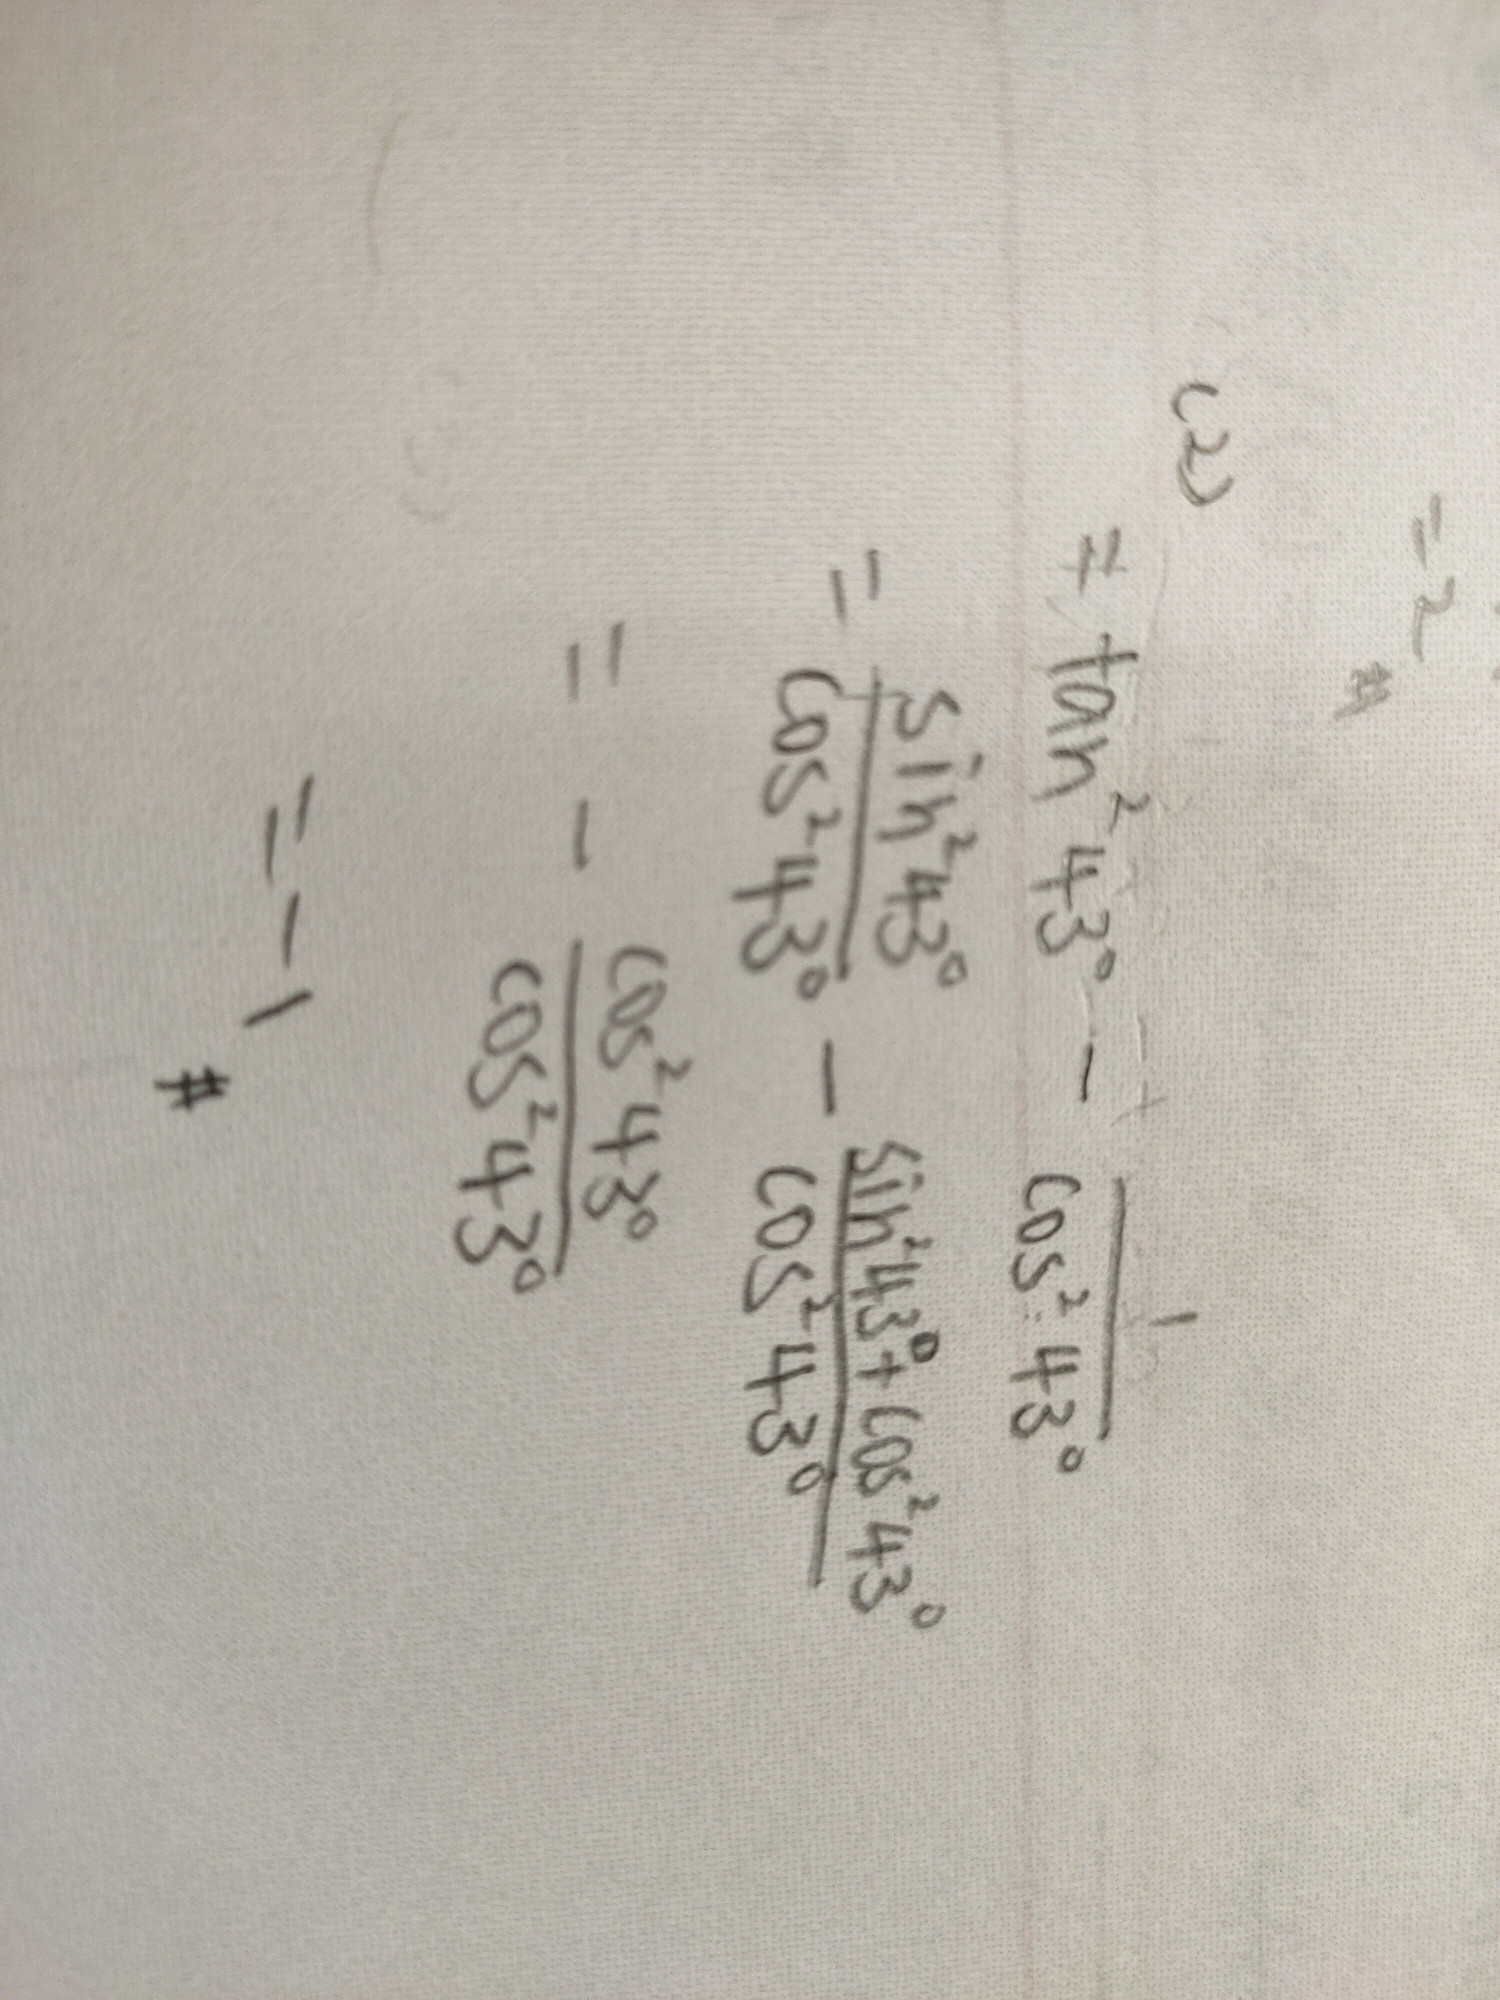 = 2
#
(2)
= tan²43° - 1/cos²43°
= sin²43°/cos²43° - sin²43°+cos²43°/cos²43°
= - cos²43°/cos²43°
= -1
#